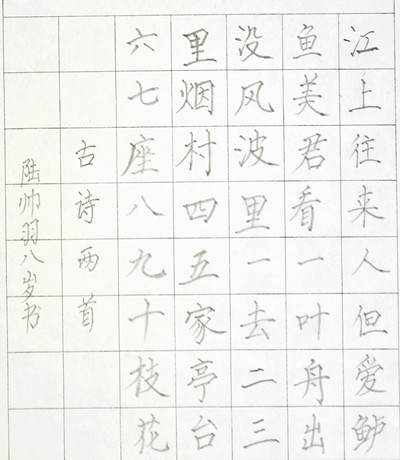 江上往来人但爱鲈
鱼美君看一叶舟出
没风波里一去二三
里烟村四五家亭台
六七座八九十枝花
古诗两首
陆帅羽八岁书